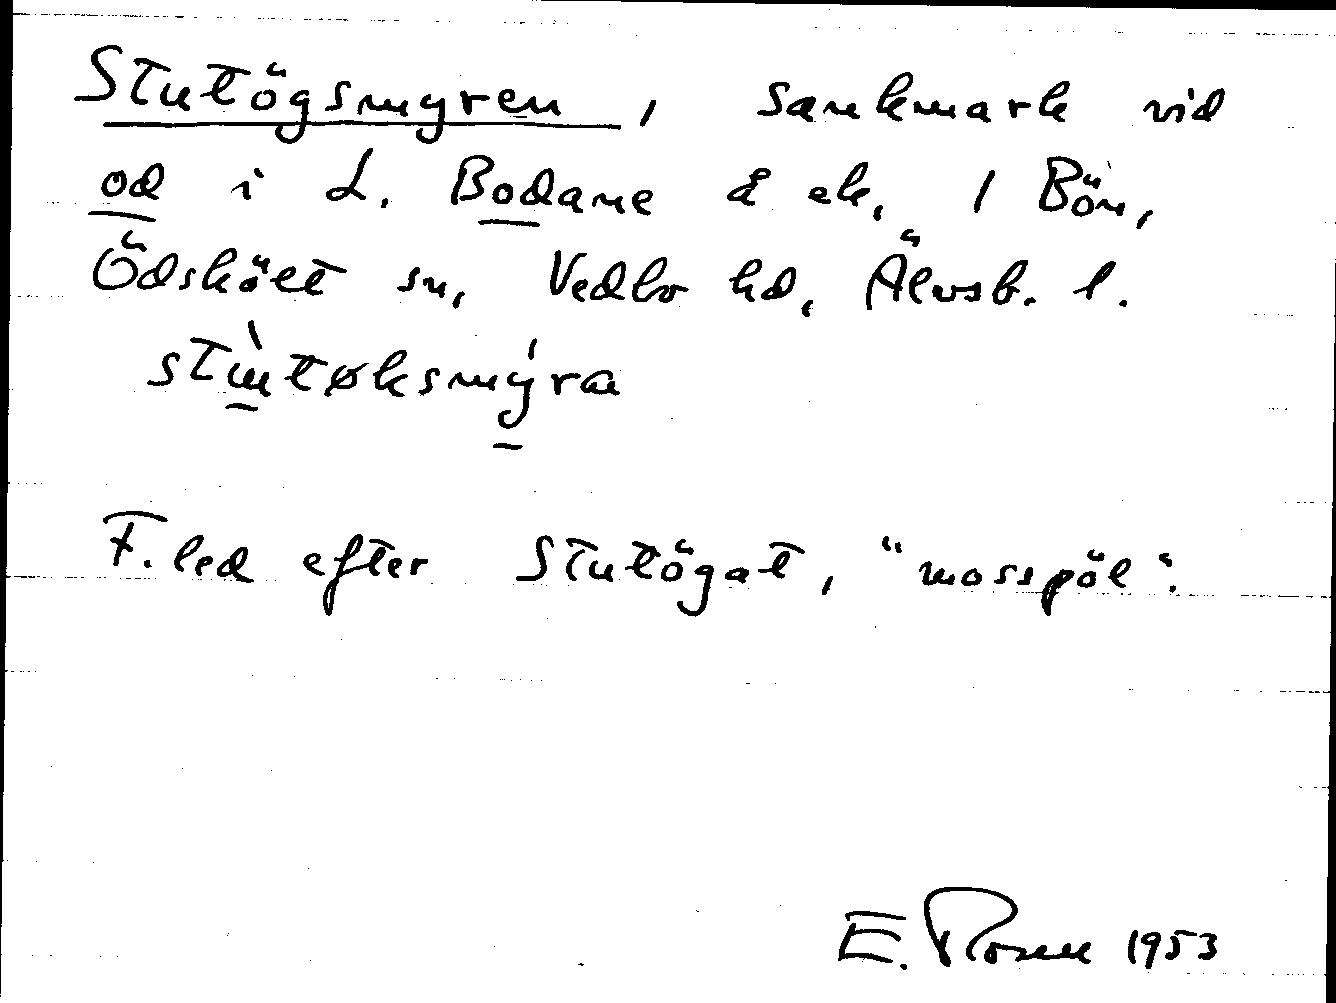 Stutögsmyren, sankmark vid
od i L. Bodane å ek, 1 Bön,
Ödskölt sn, Vedbo hd, Älvsb. l.
stùtøksmýra
F.led efter Stutögat, "mosspöl".
E. Rosen 1953